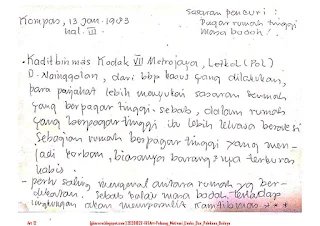 Kompas, 13 Jan. 1983
hal. III
Sasaran pencuri :
Pagar rumah tinggi
Masa bodoh !
· Kaditbinmas Kodak VII Metrojaya, Letkol (Pol)
D. Nainggolan, dari bbp kasus yang dilakukan,
para penjahat lebih menyukai sasaran rumah
yang berpagar tinggi. Sebab, dalam rumah
yang berpagar tinggi itu lebih leluasa beroperasi
Sebagian rumah berpagar tinggi yang men-
jadi korban, biasanya barang²nya terkuras
habis.
- perlu saling mengenal antara rumah yg ber-
dekatan. Sebab kalau masa bodoh terhadap
lingkungan akan mempersulit Kamtibmas ***